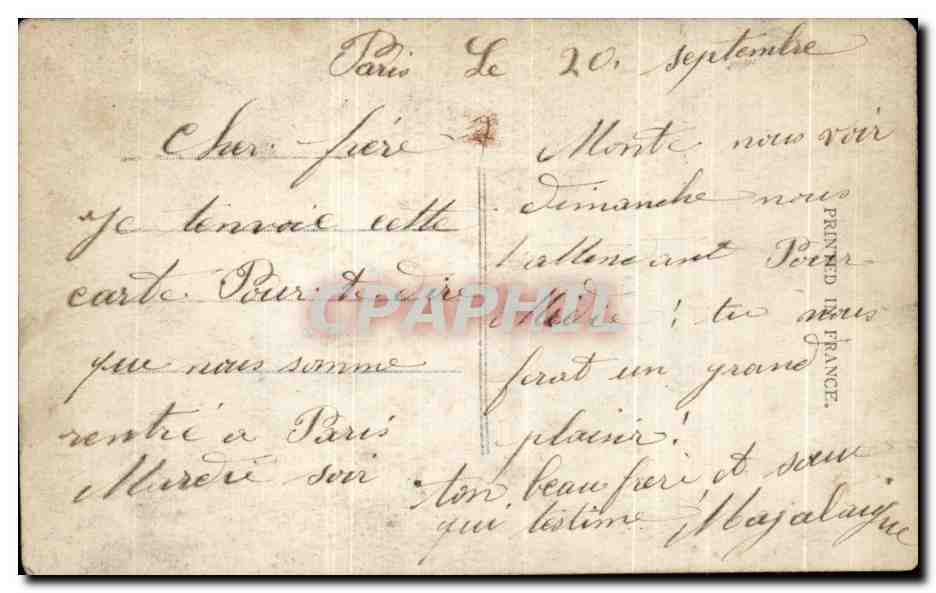 Paris Le 20 septembre
Cher frère
Je tenvoie cette
carte Pour te dire
que nous somme
rentré a Paris
Mardie soir
Monte nous voir
dimanche nous
tattendant Pour
Midie ! tu nous
ferat un grand
plaisir !
ton beau frère et sœur
qui testime
PRINTED IN FRANCE.
CPAPHIL